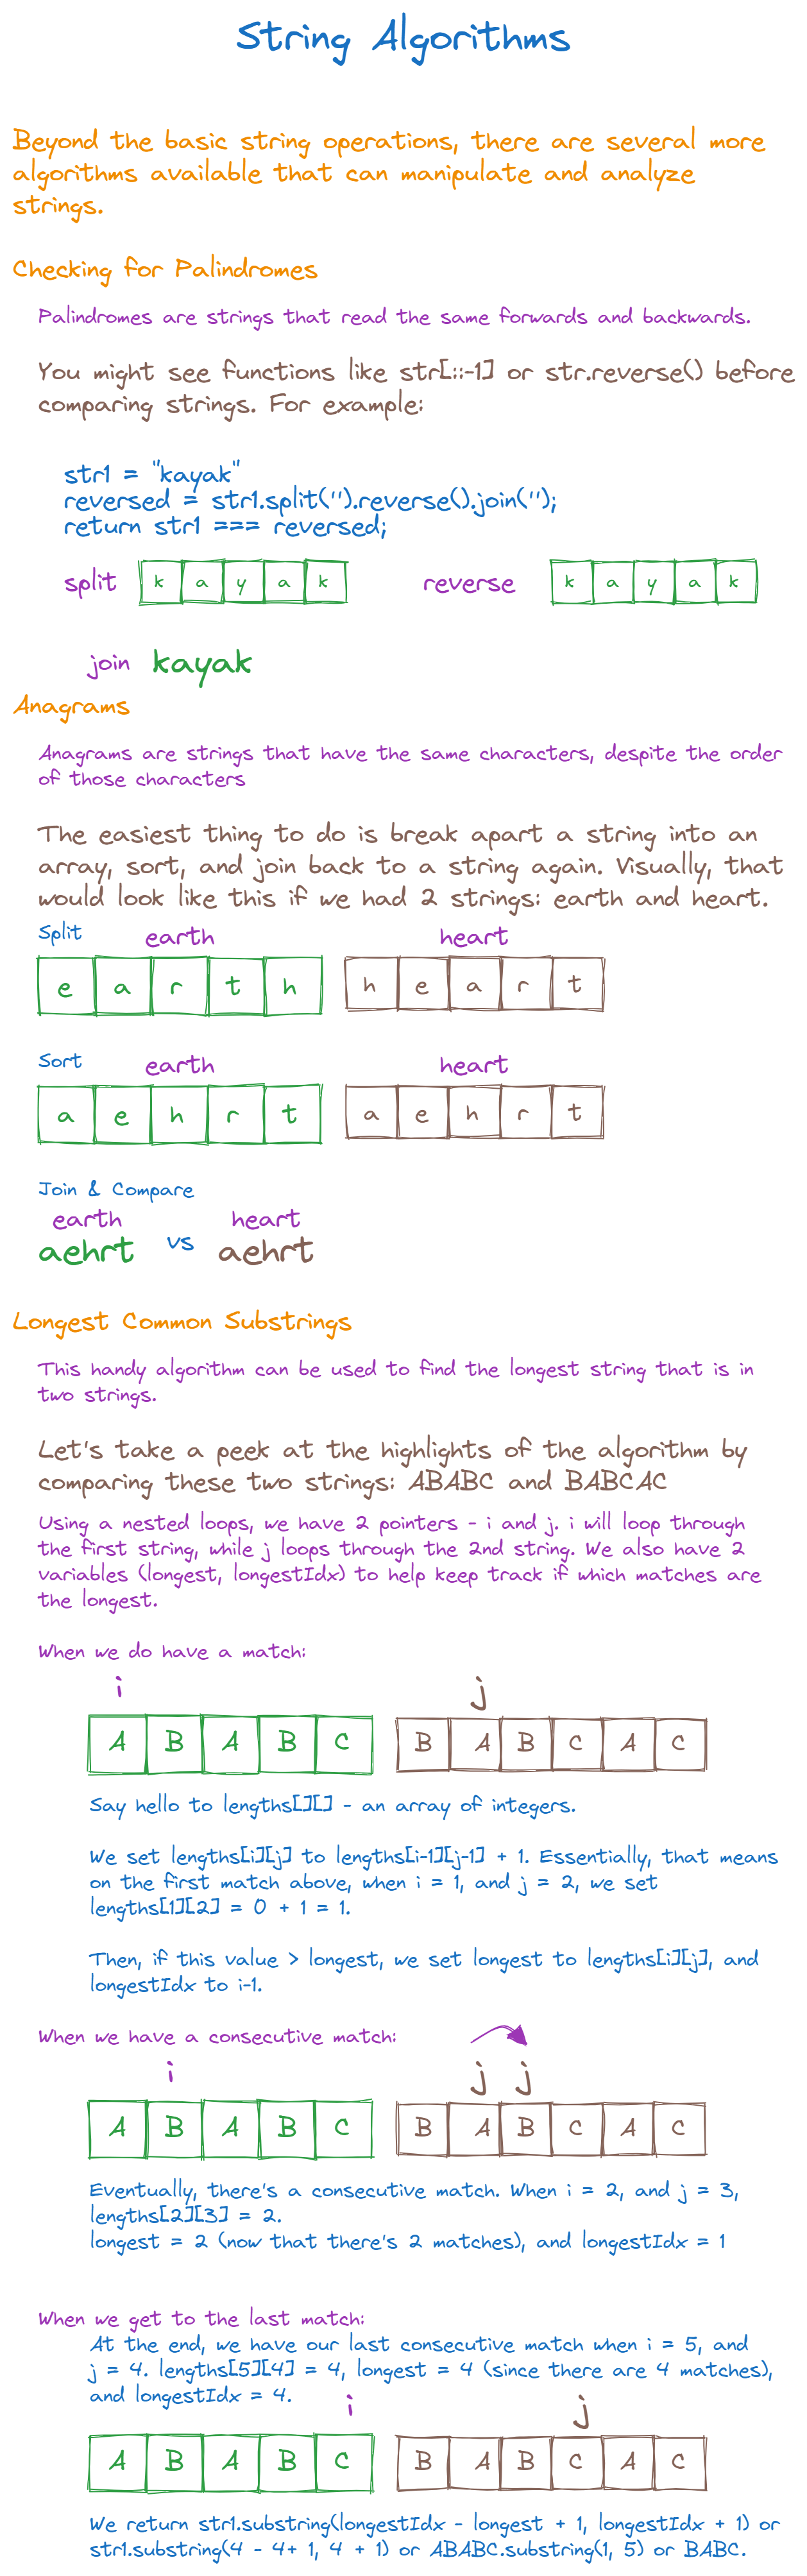 String Algorithms
Beyond the basic string operations, there are several more
algorithms available that can manipulate and analyze
strings.
Checking for Palindromes
Palindromes are strings that read the same forwards and backwards.
You might see functions like str[::-1] or str.reverse() before
comparing strings. For example:
str1 = "kayak"
reversed = str1.split('').reverse().join('');
return str1 === reversed;
split k a y a k reverse k a y a k
join kayak
Anagrams
Anagrams are strings that have the same characters, despite the order
of those characters
The easiest thing to do is break apart a string into an
array, sort, and join back to a string again. Visually, that
would look like this if we had 2 strings: earth and heart.
Split earth heart
e a r t h h e a r t
Sort earth heart
a e h r t a e h r t
Join & Compare
earth heart
aehrt vs aehrt
Longest Common Substrings
This handy algorithm can be used to find the longest string that is in
two strings.
Let's take a peek at the highlights of the algorithm by
comparing these two strings: ABABC and BABCAC
Using a nested loops, we have 2 pointers - i and j. i will loop through
the first string, while j loops through the 2nd string. We also have 2
variables (longest, longestIdx) to help keep track if which matches are
the longest.
When we do have a match:
i j
A B A B C B A B C A C
Say hello to lengths[][] - an array of integers.
We set lengths[i][j] to lengths[i-1][j-1] + 1. Essentially, that means
on the first match above, when i = 1, and j = 2, we set
lengths[1][2] = 0 + 1 = 1.
Then, if this value > longest, we set longest to lengths[i][j], and
longestIdx to i-1.
When we have a consecutive match:
i j j
A B A B C B A B C A C
Eventually, there's a consecutive match. When i = 2, and j = 3,
lengths[2][3] = 2.
longest = 2 (now that there's 2 matches), and longestIdx = 1
When we get to the last match:
At the end, we have our last consecutive match when i = 5, and
j = 4. lengths[5][4] = 4, longest = 4 (since there are 4 matches),
and longestIdx = 4.
i j
A B A B C B A B C A C
We return str1.substring(longestIdx - longest + 1, longestIdx + 1) or
str1.substring(4 - 4+ 1, 4 + 1) or ABABC.substring(1, 5) or BABC.